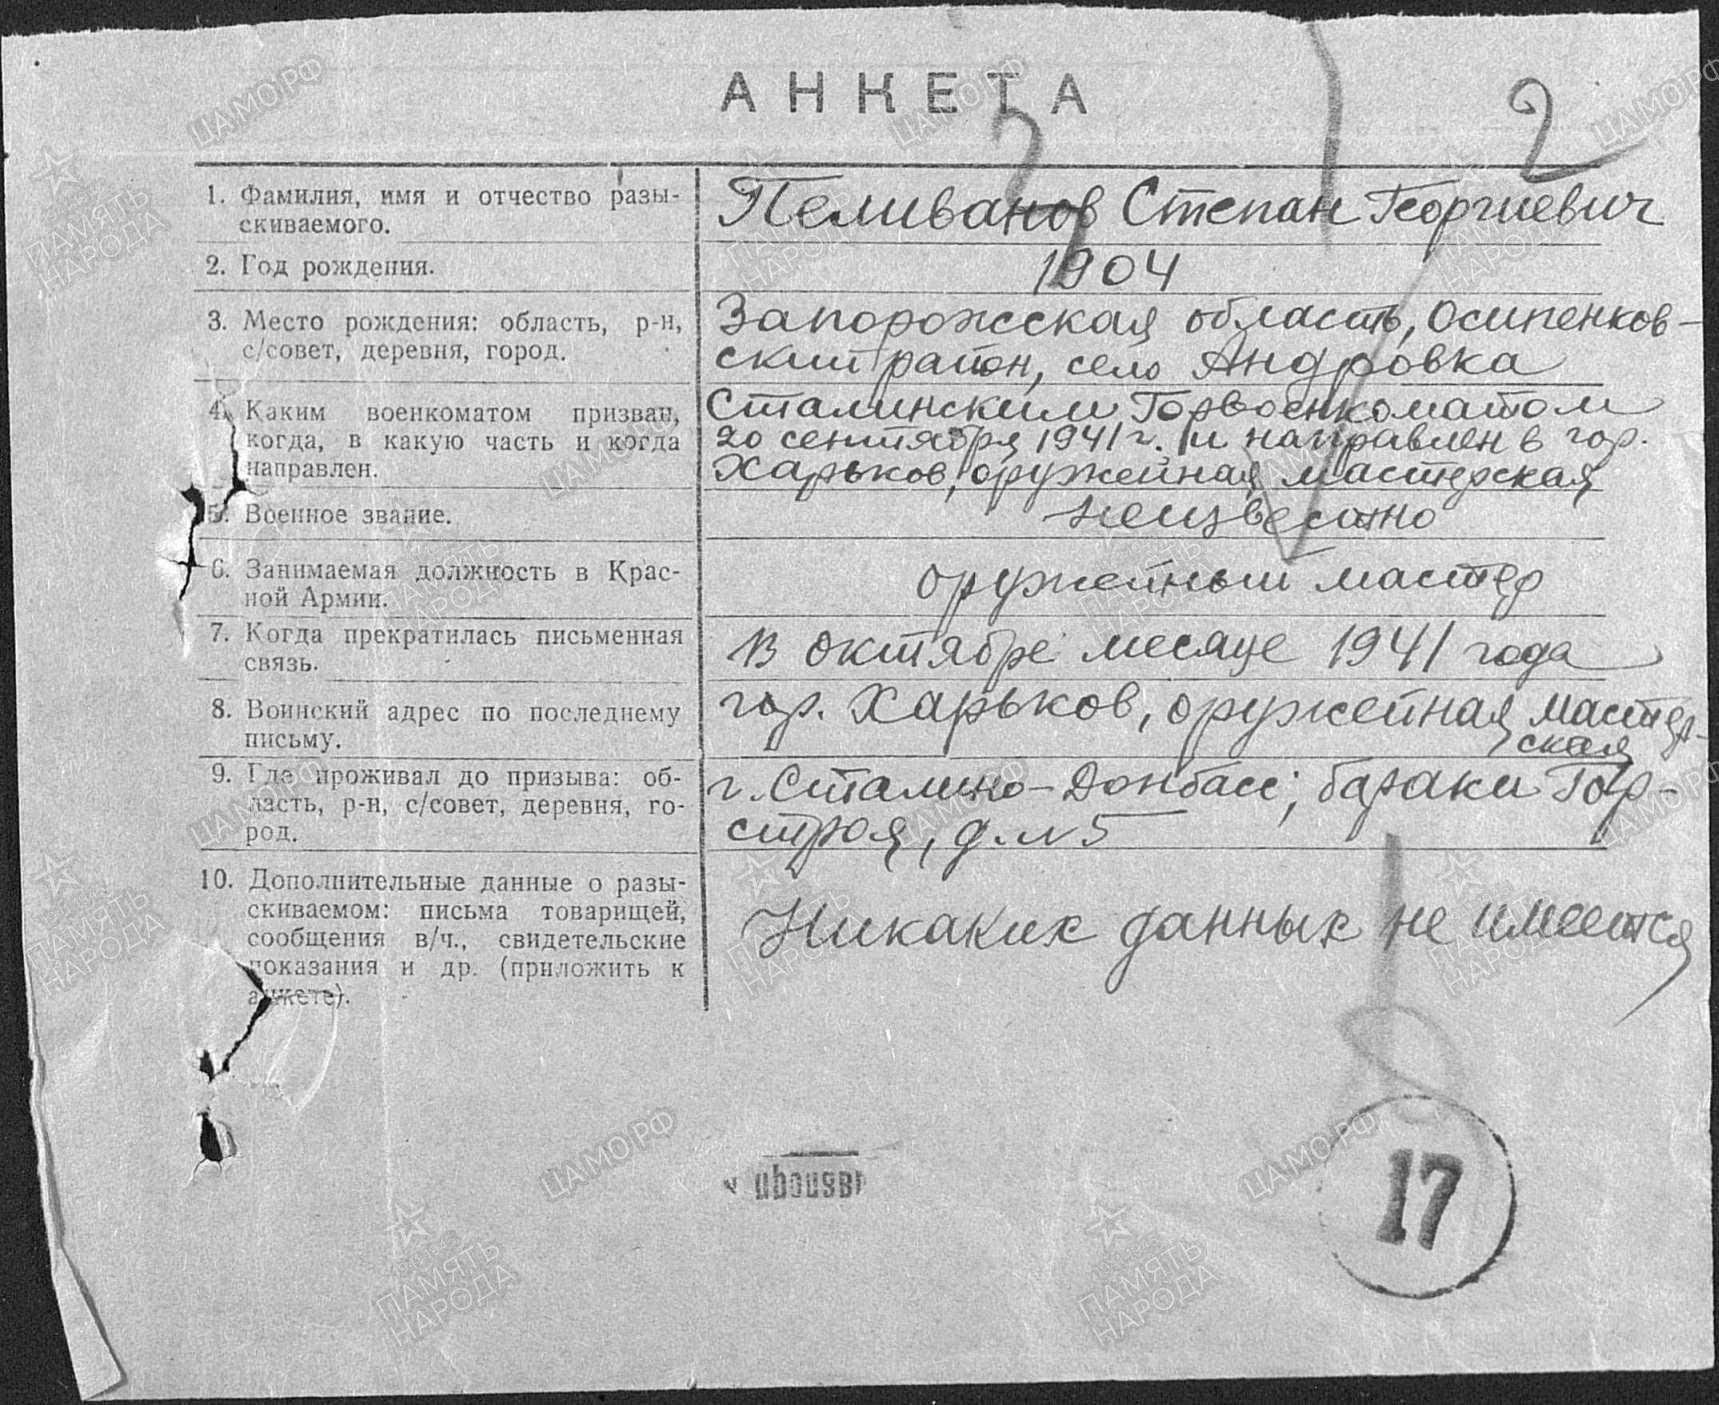 АНКЕТА
2
1. Фамилия, имя и отчество разы-
скиваемого.
Пеливанов Степан Георгиевич
2. Год рождения.
1904
3. Место рождения: область, р-н,
с/совет, деревня, город.
Запорожская область, Осипенков-
ский район, село Андровка
4. Каким военкоматом призван,
когда, в какую часть и когда
направлен.
Сталинским Горвоенкоматом
20 сентября 1941 г. и направлен в гор.
Харьков, оружейная мастерская
5. Военное звание.
неизвестно
6. Занимаемая должность в Крас-
ной Армии.
оружейный мастер
7. Когда прекратилась письменная
связь.
В октябре месяце 1941 года
8. Воинский адрес по последнему
письму.
гор. Харьков, оружейная мастер-
ская
9. Где проживал до призыва: об-
ласть, р-н, с/совет, деревня, го-
род.
г. Сталино-Донбасс; бараки Гор-
строя, д. № 5
10. Дополнительные данные о разы-
скиваемом: письма товарищей,
сообщения в/ч., свидетельские
показания и др. (приложить к
анкете).
Никаких данных не имеется
17
ЦАМО.РФ
ПАМЯТЬ
НАРОДА